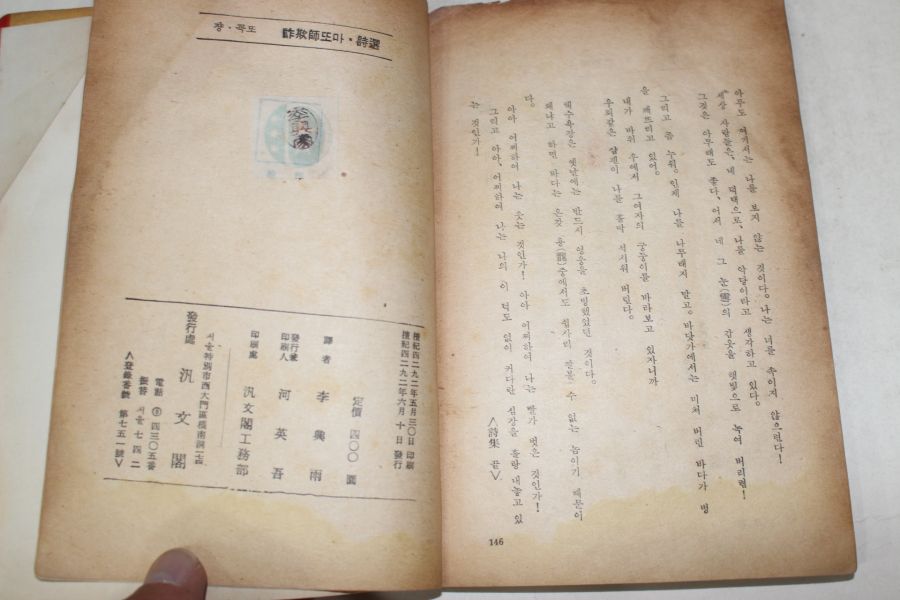 아무도 여기서는 나를 보지 않는 것이다. 나는 너를 속이지 않으련다!
세상 사람들은, 네 덕택으로, 나를 악당이라고 생각하고 있다.
그것은 아무래도 좋다, 어서 네 그 눈(雪)의 갑옷을 햇빛으로 녹여 버리렴!
그리고 좀 누워, 인제 나를 나무래지 말고, 바닷가에서는 미쳐 버린 바다가 병
을 깨뜨리고 있어.
내가 바위 우에서 그여자의 궁둥이를 바라보고 있자니까
우뢰같은 물결이 나를 흠뻑 적시워 버린다.
해수욕장은 옛날에는 반드시 잉승을 초빙했었던 것이다.
왜냐고 하면 바다는 온갖 용(龍)중에서도 쉽사리 믿을 수 없는 놈이기 때문이
다.
아아 어찌하여 나는 웃는 것인가! 아아 어찌하여 나는 빨가 벗은 것인가!
그리고 아아, 어찌하여 나는 나의 이 턱도 없이 커다란 심장을 들랑 내놓고 있
는 것인가!
〈詩集 끝〉
146
쟝・콕또 詐欺師또마・詩選
檀紀四二九二年五月三〇日 印刷
檀紀四二九二年六月一〇日 發行
定價 四〇〇 圜
譯者 李興雨
發行兼
印刷人 河英吾
印刷處 汎文閣工務部
서울特別市西大門區橋南洞一七四
發行處 汎文閣
電話 ③ 四三〇五番
振替 서울 七四二
〈登錄番號 第七五一號〉